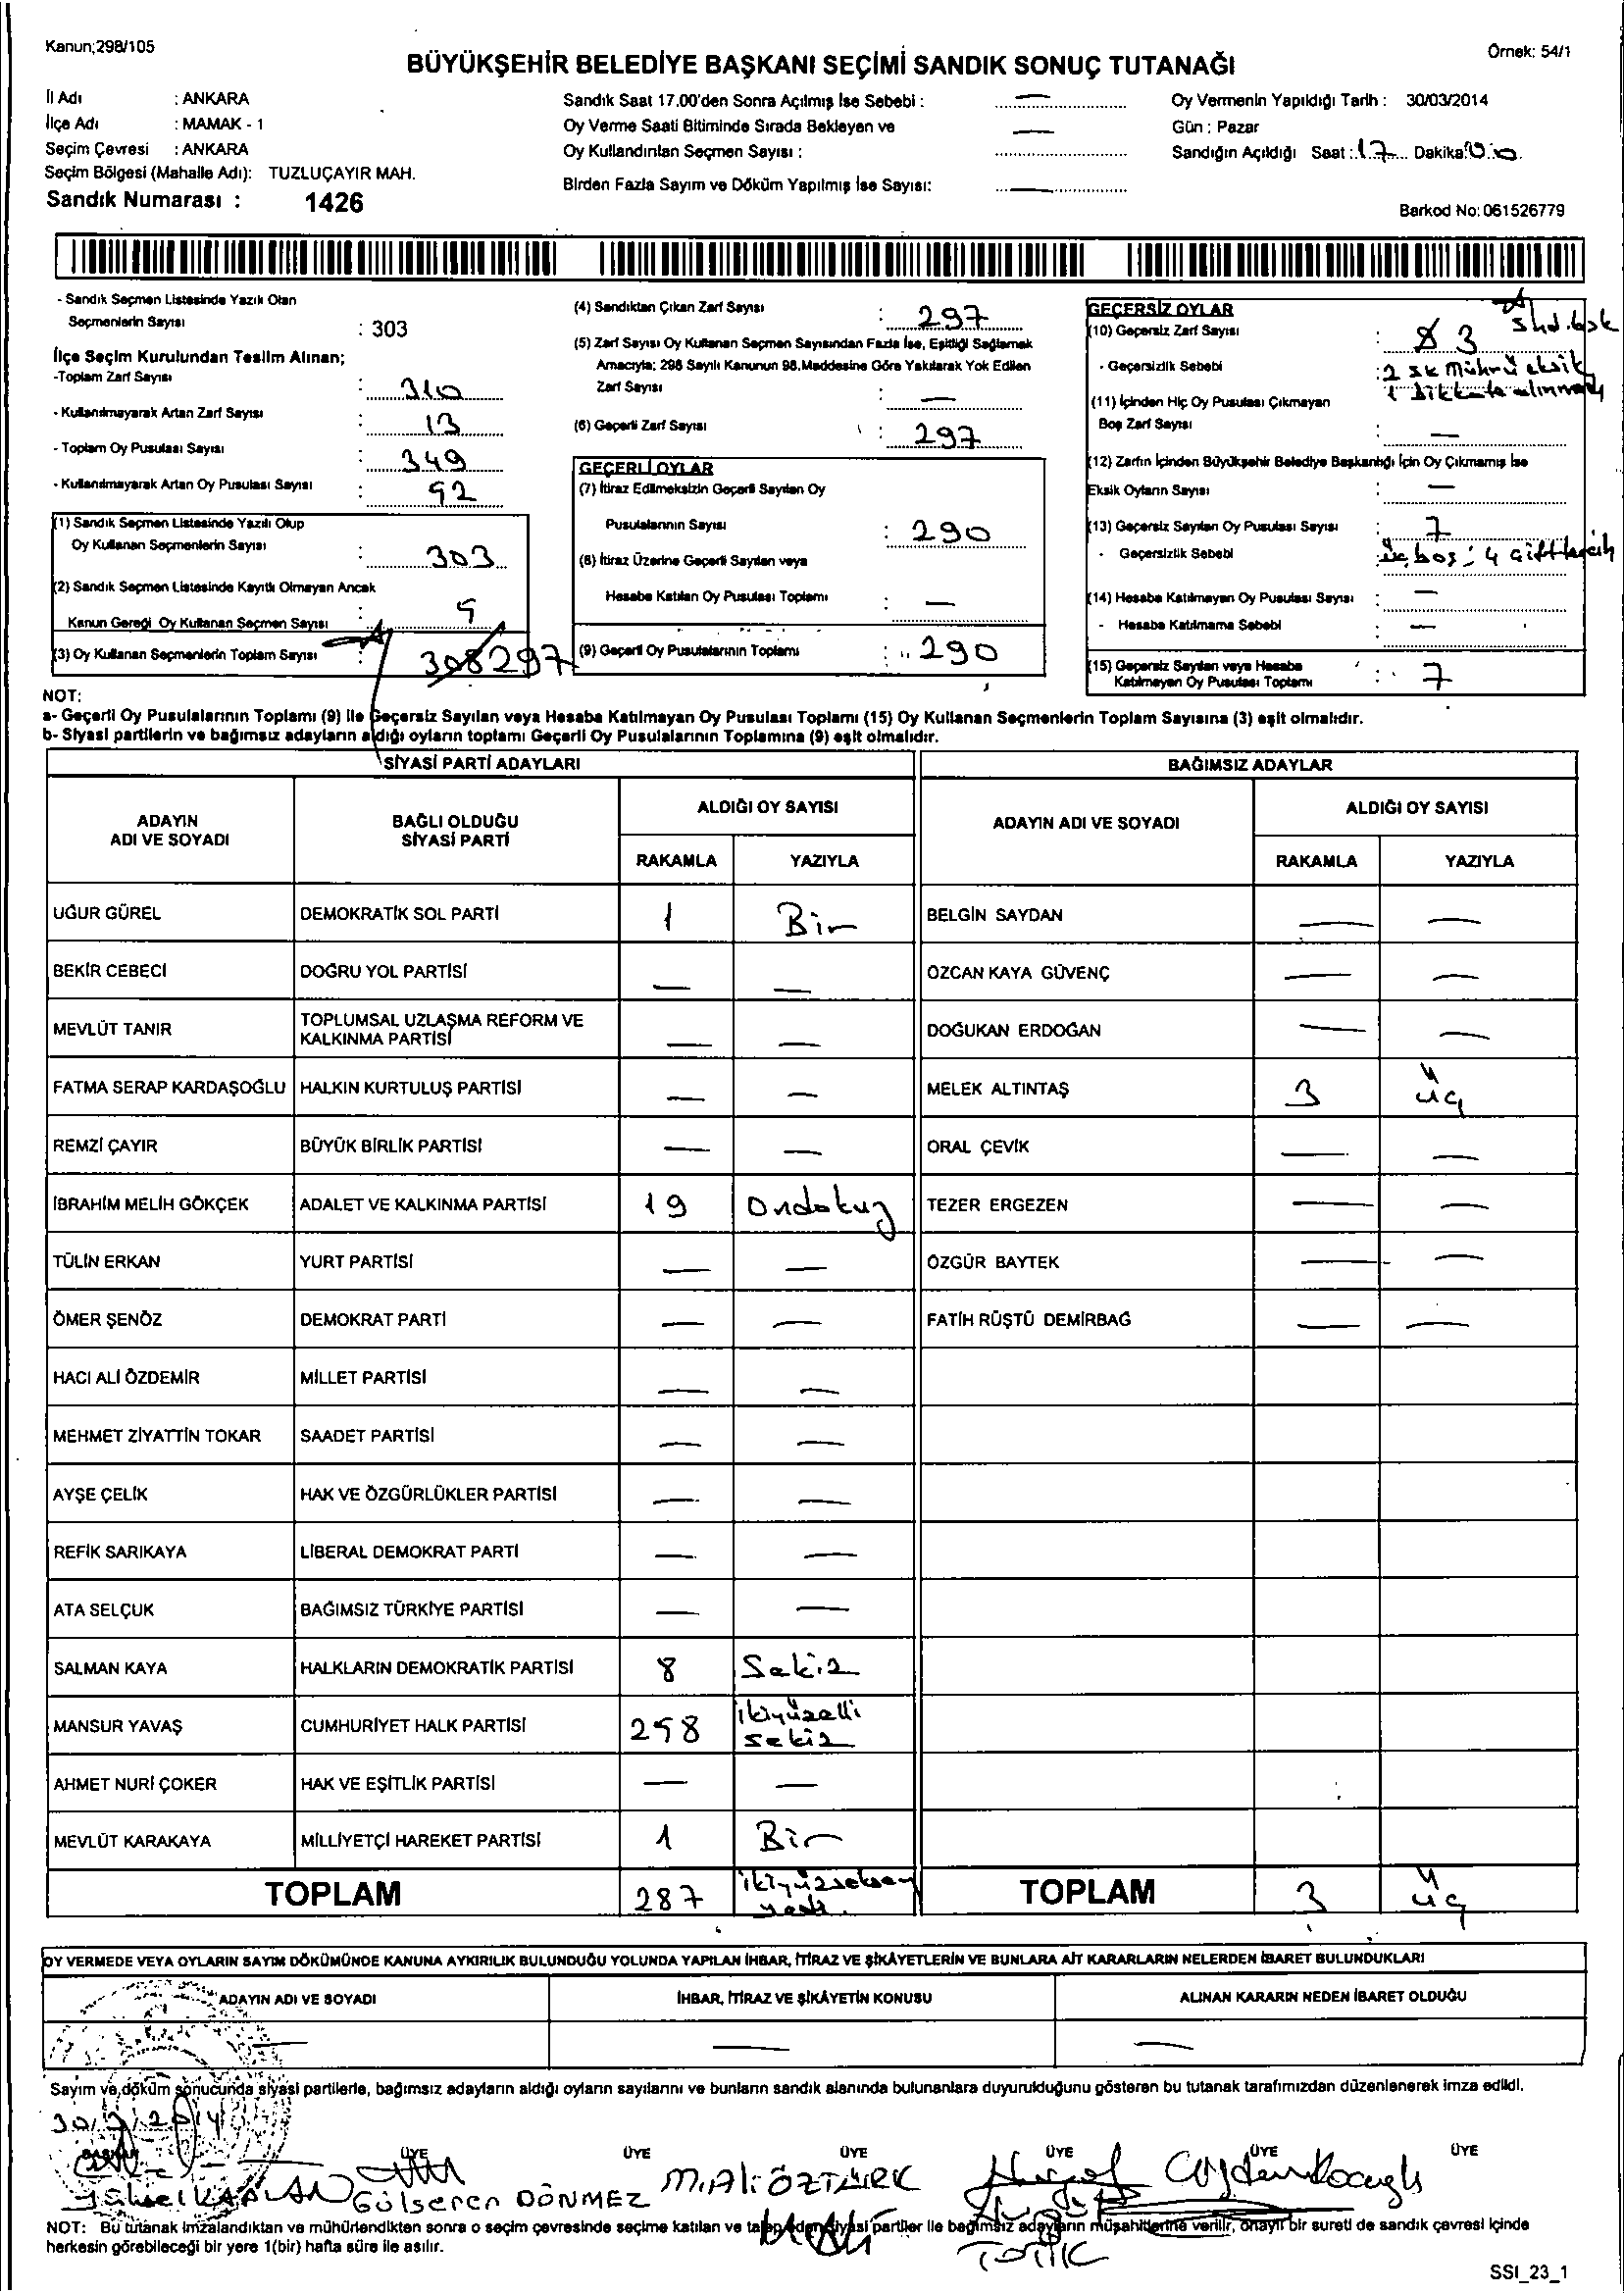 Kanun;298/105
Örnek: 54/1
BÜYÜKŞEHİR BELEDİYE BAŞKANI SEÇİMİ SANDIK SONUÇ TUTANAĞI
İl Adı : ANKARA
İlçe Adı : MAMAK - 1
Seçim Çevresi : ANKARA
Seçim Bölgesi (Mahalle Adı): TUZLUÇAYIR MAH.
Sandık Numarası : 1426
Sandık Saat 17.00'den Sonra Açılmış İse Sebebi : —
Oy Verme Saati Bitiminde Sırada Bekleyen ve
Oy Kullandırılan Seçmen Sayısı : —
Birden Fazla Sayım ve Döküm Yapılmış İse Sayısı: —
Oy Vermenin Yapıldığı Tarih : 30/03/2014
Gün : Pazar
Sandığın Açıldığı Saat : 17 Dakika: 00
Barkod No: 061526779
- Sandık Seçmen Listesinde Yazılı Olan
Seçmenlerin Sayısı : 303
İlçe Seçim Kurulundan Teslim Alınan;
-Toplam Zarf Sayısı : 310
- Kullanılmayarak Artan Zarf Sayısı : 13
- Toplam Oy Pusulası Sayısı : 349
- Kullanılmayarak Artan Oy Pusulası Sayısı : 92
(1) Sandık Seçmen Listesinde Yazılı Olup
Oy Kullanan Seçmenlerin Sayısı : 303
(2) Sandık Seçmen Listesinde Kayıtlı Olmayan Ancak
Kanun Gereği Oy Kullanan Seçmen Sayısı : 5
(3) Oy Kullanan Seçmenlerin Toplam Sayısı : 308 297
(4) Sandıktan Çıkan Zarf Sayısı : 297
(5) Zarf Sayısı Oy Kullanan Seçmen Sayısından Fazla İse, Eşitliği Sağlamak
Amacıyla; 298 Sayılı Kanunun 98.Maddesine Göre Yakılarak Yok Edilen
Zarf Sayısı : —
(6) Geçerli Zarf Sayısı : 297
GEÇERLİ OYLAR
(7) İtiraz Edilmeksizin Geçerli Sayılan Oy
Pusulalarının Sayısı : 290
(8) İtiraz Üzerine Geçerli Sayılan veya
Hesaba Katılan Oy Pusulası Toplamı : —
(9) Geçerli Oy Pusulalarının Toplamı : 290
GEÇERSİZ OYLAR
(10) Geçersiz Zarf Sayısı : 8 3
- Geçersizlik Sebebi : 2 sk mührü eksik
1 dikkate alınmadı
(11) İçinden Hiç Oy Pusulası Çıkmayan
Boş Zarf Sayısı : —
(12) Zarfın İçinden Büyükşehir Belediye Başkanlığı İçin Oy Çıkmamış İse
Eksik Oyların Sayısı : —
(13) Geçersiz Sayılan Oy Pusulası Sayısı : 7
- Geçersizlik Sebebi : üç boş; 4 çift tercih
(14) Hesaba Katılmayan Oy Pusulası Sayısı : —
- Hesaba Katılmama Sebebi : —
(15) Geçersiz Sayılan veya Hesaba
Katılmayan Oy Pusulası Toplamı : 7
NOT:
a- Geçerli Oy Pusulalarının Toplamı (9) ile Geçersiz Sayılan veya Hesaba Katılmayan Oy Pusulası Toplamı (15) Oy Kullanan Seçmenlerin Toplam Sayısına (3) eşit olmalıdır.
b- Siyasi partilerin ve bağımsız adayların aldığı oyların toplamı Geçerli Oy Pusulalarının Toplamına (9) eşit olmalıdır.
SİYASİ PARTİ ADAYLARI BAĞIMSIZ ADAYLAR
ADAYIN ADI VE SOYADI BAĞLI OLDUĞU SİYASİ PARTİ ALDIĞI OY SAYISI ADAYIN ADI VE SOYADI ALDIĞI OY SAYISI
RAKAMLA YAZIYLA RAKAMLA YAZIYLA
UĞUR GÜREL DEMOKRATİK SOL PARTİ 1 Bir BELGİN SAYDAN — —
BEKİR CEBECİ DOĞRU YOL PARTİSİ — — ÖZCAN KAYA GÜVENÇ — —
MEVLÜT TANIR TOPLUMSAL UZLAŞMA REFORM VE KALKINMA PARTİSİ — — DOĞUKAN ERDOĞAN — —
FATMA SERAP KARDAŞOĞLU HALKIN KURTULUŞ PARTİSİ — — MELEK ALTINTAŞ 3 üç
REMZİ ÇAYIR BÜYÜK BİRLİK PARTİSİ — — ORAL ÇEVİK — —
İBRAHİM MELİH GÖKÇEK ADALET VE KALKINMA PARTİSİ 19 Ondokuz TEZER ERGEZEN — —
TÜLİN ERKAN YURT PARTİSİ — — ÖZGÜR BAYTEK — —
ÖMER ŞENÖZ DEMOKRAT PARTİ — — FATİH RÜŞTÜ DEMİRBAĞ — —
HACI ALİ ÖZDEMİR MİLLET PARTİSİ — —
MEHMET ZİYATTİN TOKAR SAADET PARTİSİ — —
AYŞE ÇELİK HAK VE ÖZGÜRLÜKLER PARTİSİ — —
REFİK SARIKAYA LİBERAL DEMOKRAT PARTİ — —
ATA SELÇUK BAĞIMSIZ TÜRKİYE PARTİSİ — —
SALMAN KAYA HALKLARIN DEMOKRATİK PARTİSİ 8 Sekiz
MANSUR YAVAŞ CUMHURİYET HALK PARTİSİ 258 ikiyüzelli sekiz
AHMET NURİ ÇOKER HAK VE EŞİTLİK PARTİSİ — —
MEVLÜT KARAKAYA MİLLİYETÇİ HAREKET PARTİSİ 1 Bir
TOPLAM 287 ikiyüzseksen yedi. TOPLAM 3 üç
OY VERMEDE VEYA OYLARIN SAYIM DÖKÜMÜNDE KANUNA AYKIRILIK BULUNDUĞU YOLUNDA YAPILAN İHBAR, İTİRAZ VE ŞİKÂYETLERİN VE BUNLARA AİT KARARLARIN NELERDEN İBARET BULUNDUKLARI
ADAYIN ADI VE SOYADI İHBAR, İTİRAZ VE ŞİKÂYETİN KONUSU ALINAN KARARIN NEDEN İBARET OLDUĞU
— — —
Sayım ve döküm sonucunda siyasi partilerle, bağımsız adayların aldığı oyların sayılarını ve bunların sandık alanında bulunanlara duyurulduğunu gösteren bu tutanak tarafımızdan düzenlenerek imza edildi.
30/3/2014
BAŞKAN ÜYE ÜYE ÜYE ÜYE ÜYE ÜYE
Yüksel KAPLAN Gülseren DÖNMEZ M.Ali ÖZTÜRK
NOT: Bu tutanak imzalandıktan ve mühürlendikten sonra o seçim çevresinde seçime katılan ve talep eden siyasi partiler ile bağımsız adayların müşahitlerine verilir, onaylı bir sureti de sandık çevresi içinde
herkesin görebileceği bir yere 1(bir) hafta süre ile asılır.
SSI_23_1